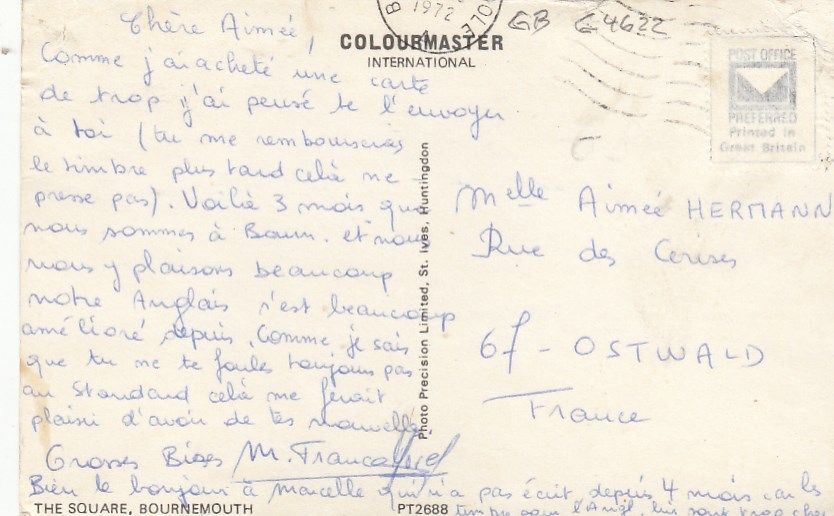 Chère Aimée,
Comme j'ai acheté une carte
de trop j'ai pensé te l'envoyer
à toi (tu me rembourseras
le timbre plus tard celà ne
presse pas). Voilà 3 mois que
nous sommes à Bourn. et nous
nous y plaisons beaucoup
notre Anglais s'est beaucoup
amélioré depuis. Comme je sais
que tu ne te foules toujours pas
au Standard celà me ferait
plaisir d'avoir de tes nouvelles.
Grosses Bises M.
Bien le bonjour à Marcelle qui n'a pas écrit depuis 4 mois car les
timbre pour l'Angl. lui sont trop cher
THE SQUARE, BOURNEMOUTH
PT2688
COLOURMASTER
INTERNATIONAL
Photo Precision Limited, St. Ives, Huntingdon
1972
OLE
B
GB G4622
POST OFFICE
PREFERRED
Printed in
Great Britain
Melle Aimée HERMANN
Rue des Cerises
67 - OSTWALD
France